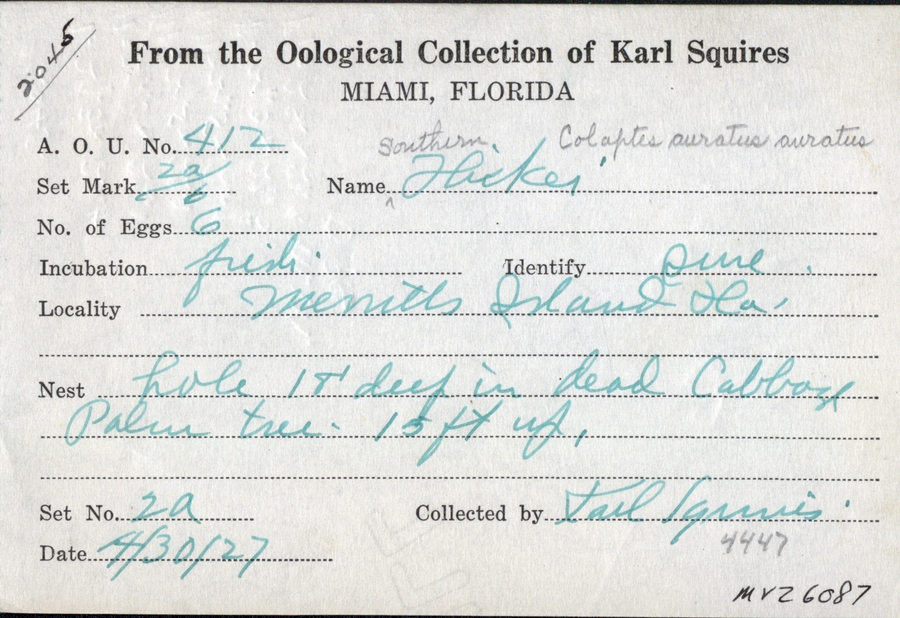 2045
From the Oological Collection of Karl Squires
MIAMI, FLORIDA
A. O. U. No. 412 Southern Colaptes auratus auratus
Set Mark 2a/6 Name ^ Flicker
No. of Eggs 6
Incubation fresh. Identify sure.
Locality Merritts Island Fla.
Nest hole 18" deep in dead Cabbage
Palm tree. 15 ft up.
Set No. 2a Collected by Karl Squires.
4447
Date 4/30/27
MVZ 6087